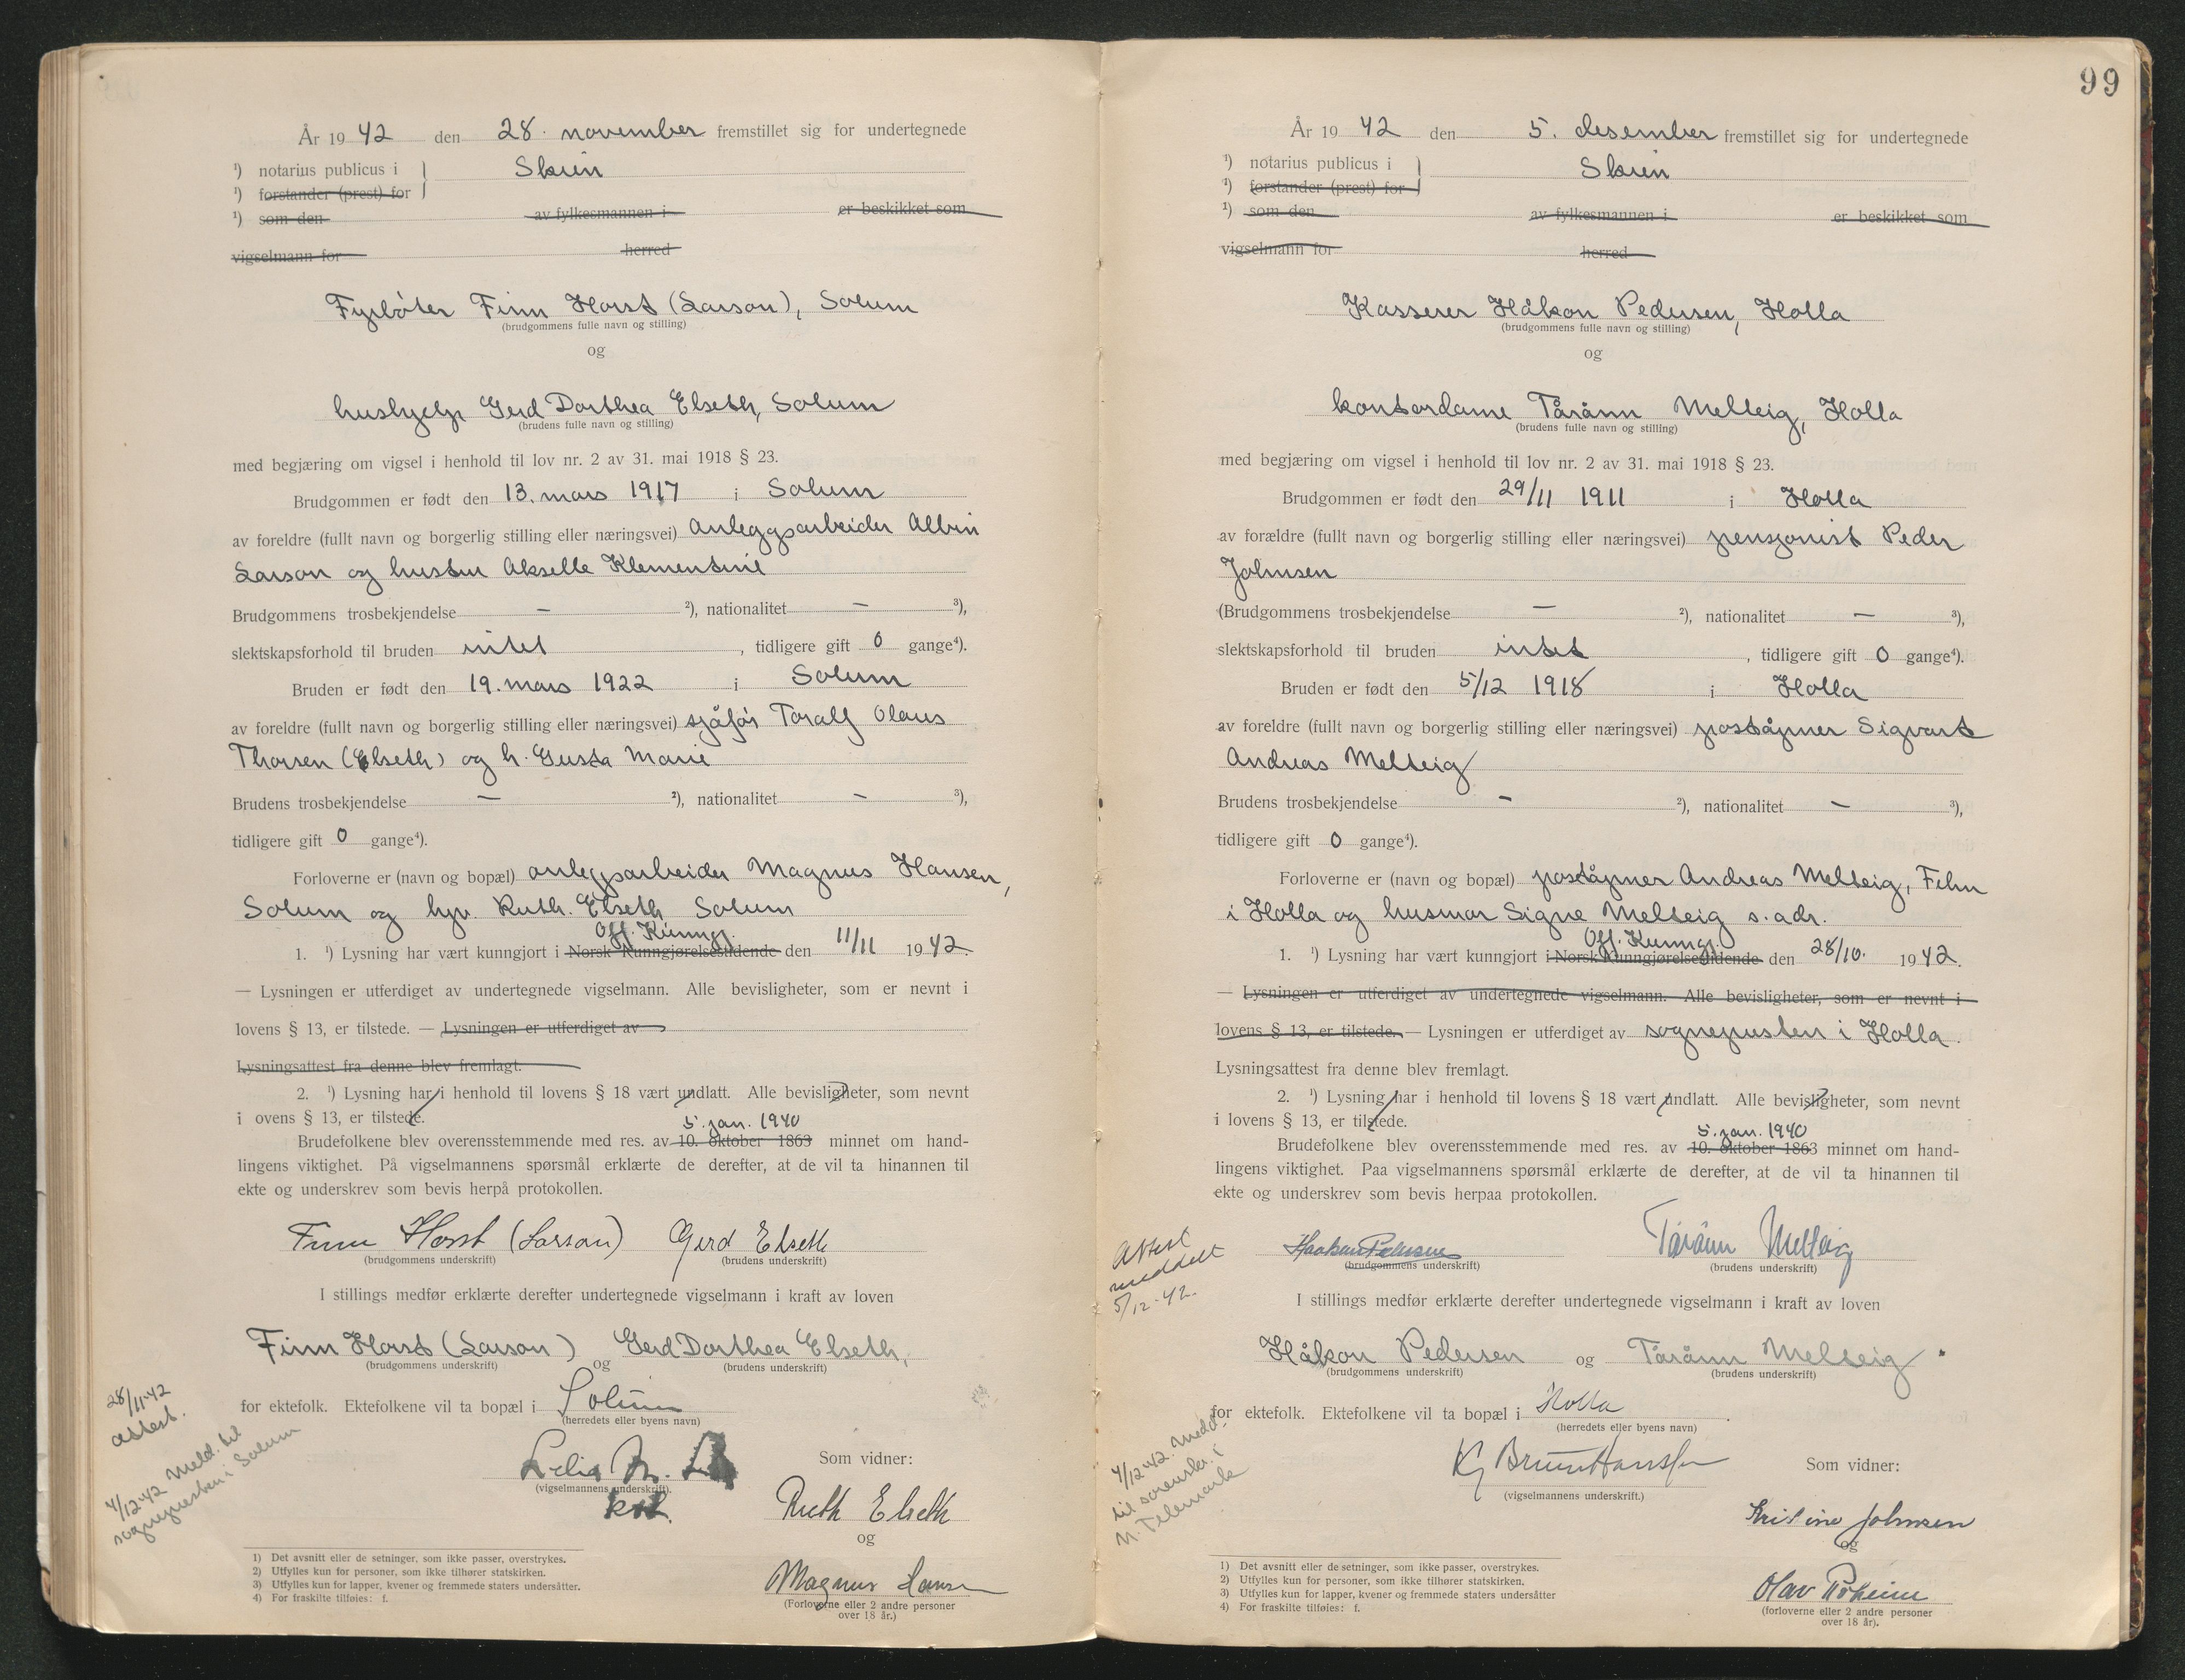 År 19 42 den 28. november fremstillet sig for undertegnede
¹) notarius publicus i } Skien
¹) forstander (prest) for
¹) som den av fylkesmannen i er beskikket som
vigselmann for herred
Fyrbøter Finn Horst (Larson), Solum
(brudgommens fulle navn og stilling)
og
hushjelp Gerd Dorthea Elseth, Solum
(brudens fulle navn og stilling)
med begjæring om vigsel i henhold til lov nr. 2 av 31. mai 1918 § 23.
Brudgommen er født den 13. mars 1917 i Solum
av foreldre (fullt navn og borgerlig stilling eller næringsvei) Anleggsarbeider Albin
Larson og hustru Akselle Klementine
Brudgommens trosbekjendelse — ²), nationalitet — ³),
slektskapsforhold til bruden intet, tidligere gift 0 gange⁴).
Bruden er født den 19. mars 1922 i Solum
av foreldre (fullt navn og borgerlig stilling eller næringsvei) sjåfør Toralf Olaus
Thorsen (Elseth) og h. Gusta Marie
Brudens trosbekjendelse — ²), nationalitet — ³),
tidligere gift 0 gange⁴).
Forloverne er (navn og bopæl) anleggsarbeider Magnus Hansen,
Solum og hjv. Ruth. Elseth Solum
Off. Kunngj.
1. ¹) Lysning har vært kunngjort i Norsk Kunngjørelsestidende den 11/11 1942.
— Lysningen er utferdiget av undertegnede vigselmann. Alle bevisligheter, som er nevnt i
lovens § 13, er tilstede. — Lysningen er utferdiget av
Lysningsattest fra denne blev fremlagt.
2. ¹) Lysning har i henhold til lovens § 18 vært undlatt. Alle bevisligheter, som nevnt
i ovens § 13, er tilstede.
5. jan. 1940
Brudefolkene blev overensstemmende med res. av 10. oktober 1863 minnet om hand-
lingens viktighet. På vigselmannens spørsmål erklærte de derefter, at de vil ta hinannen til
ekte og underskrev som bevis herpå protokollen.
Finn Horst (Larson) Gerd Elseth
(brudgommens underskrift) (brudens underskrift)
I stillings medfør erklærte derefter undertegnede vigselmann i kraft av loven
Finn Horst (Larson) og Gerd Dorthea Elseth,
(brudgommens underskrift) (brudens underskrift)
for ektefolk. Ektefolkene vil ta bopæl i Solum
(herredets eller byens navn)
28/11-42
attest.
4/12-42 Meld. til
sognepresten i Solum
Som vidner:
(vigselmannens underskrift).
Ruth Elseth
og
Magnus Hansen
(Forloverne eller 2 andre personer
over 18 år.)
1) Det avsnitt eller de setninger, som ikke passer, overstrykes.
2) Utfylles kun for personer, som ikke tilhører statskirken.
3) Utfylles kun for lapper, kvener og fremmede staters undersåtter.
4) For fraskilte tilføies: f.
99
År 19 42 den 5. desember fremstillet sig for undertegnede
¹) notarius publicus i } Skien
¹) forstander (prest) for
¹) som den av fylkesmannen i er beskikket som
vigselmann for herred
Kasserer Håkon Pedersen, Holla
(brudgommens fulle navn og stilling)
og
kontordame Tårånn Melteig, Holla
(brudens fulle navn og stilling)
med begjæring om vigsel i henhold til lov nr. 2 av 31. mai 1918 § 23.
Brudgommen er født den 29/11 1911 i Holla
av forældre (fullt navn og borgerlig stilling eller næringsvei) pensjonist Peder
Johnsen
(Brudgommens trosbekjendelse — ²), nationalitet — ³),
slektskapsforhold til bruden intet, tidligere gift 0 gange⁴).
Bruden er født den 5/12 1918 i Holla
av foreldre (fullt navn og borgerlig stilling eller næringsvei) poståpner Sigvart
Andreas Melteig
Brudens trosbekjendelse — ²), nationalitet — ³),
tidligere gift 0 gange⁴).
Forloverne er (navn og bopæl) poståpner Andreas Melteig, Fehn
i Holla og husmor Signe Melteig s. adr.
Off. Kunngj.
1. ¹) Lysning har vært kunngjort i Norsk Kunngjørelsestidende den 28/10. 1942.
— Lysningen er utferdiget av undertegnede vigselmann. Alle bevisligheter, som er nevnt i
lovens § 13, er tilstede. — Lysningen er utferdiget av sognepresten i Holla.
Lysningsattest fra denne blev fremlagt.
2. ¹) Lysning har i henhold til lovens § 18 vært undlatt. Alle bevisligheter, som nevnt
i lovens § 13, er tilstede.
5. jan. 1940
Brudefolkene blev overensstemmende med res. av 10. oktober 1863 minnet om hand-
lingens viktighet. Paa vigselmannens spørsmål erklærte de derefter, at de vil ta hinannen til
ekte og underskrev som bevis herpaa protokollen.
Attest
meddelt
5/12-42.
Haakon Pedersen Tårånn Melteig
(brudgommens underskrift) (brudens underskrift)
I stillings medfør erklærte derefter undertegnede vigselmann i kraft av loven
Håkon Pedersen og Tårånn Melteig.
(brudgommens underskrift) (brudens underskrift)
for ektefolk. Ektefolkene vil ta bopæl i Holla.
(herredets eller byens navn)
4/12-42. Medd.
til sorenskr. i
N. Telemark
K Bruun Hanssen
Som vidner:
(vigselmannens underskrift.)
Kristine Johnsen
og
Olav
(forloverne eller 2 andre personer
over 18 år).
1) Det avsnitt eller de setninger, som ikke passer, overstrykes.
2) Utfylles kun for personer, som ikke tilhører statskirken.
3) Utfylles kun for lapper, kvener og fremmede staters undersåtter
4) For fraskilte tilføies: f.